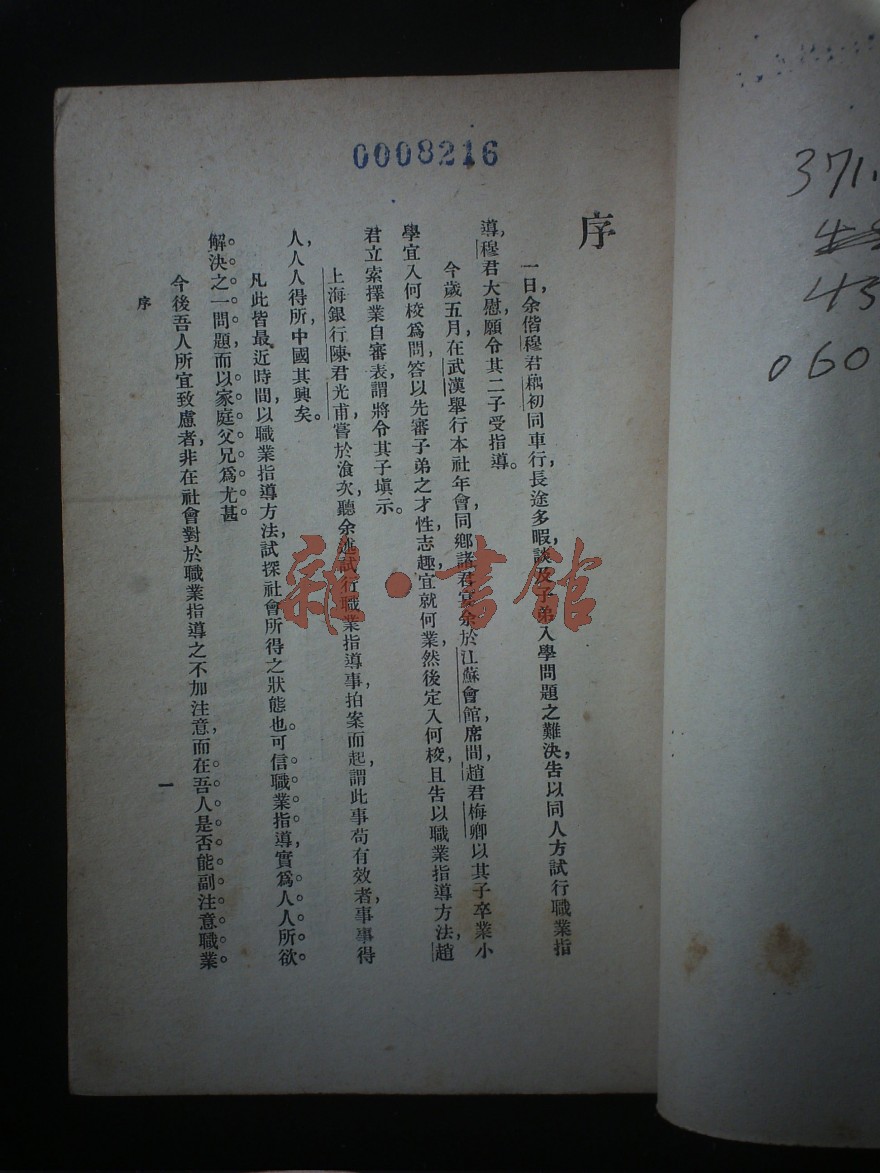 0008216
序
一日,余偕穆君藕初同車行,長途多暇,談及子弟入學問題之難決,告以同人方試行職業指
導,穆君大慰,願令其二子受指導。
今歲五月,在武漢舉行本社年會,同鄉諸君宴余於江蘇會館,席間,趙君梅卿以其子卒業小
學宜入何校爲問,答以先審子弟之才性志趣宜就何業,然後定入何校,且告以職業指導方法,趙
君立索擇業自審表,謂將令其子塡示。
上海銀行陳君光甫,嘗於飡次,聽余述試行職業指導事,拍案而起,謂此事苟有效者,事事得
人,人人得所,中國其興矣。
凡此皆最近時間,以職業指導方法,試探社會所得之狀態也。可信職業指導,實爲人人所欲
解決之一問題,而以家庭父兄爲尤甚。
今後吾人所宜致慮者,非在社會對於職業指導之不加注意,而在吾人是否能副注意職業
序
一
雜·書館
371.
43
060